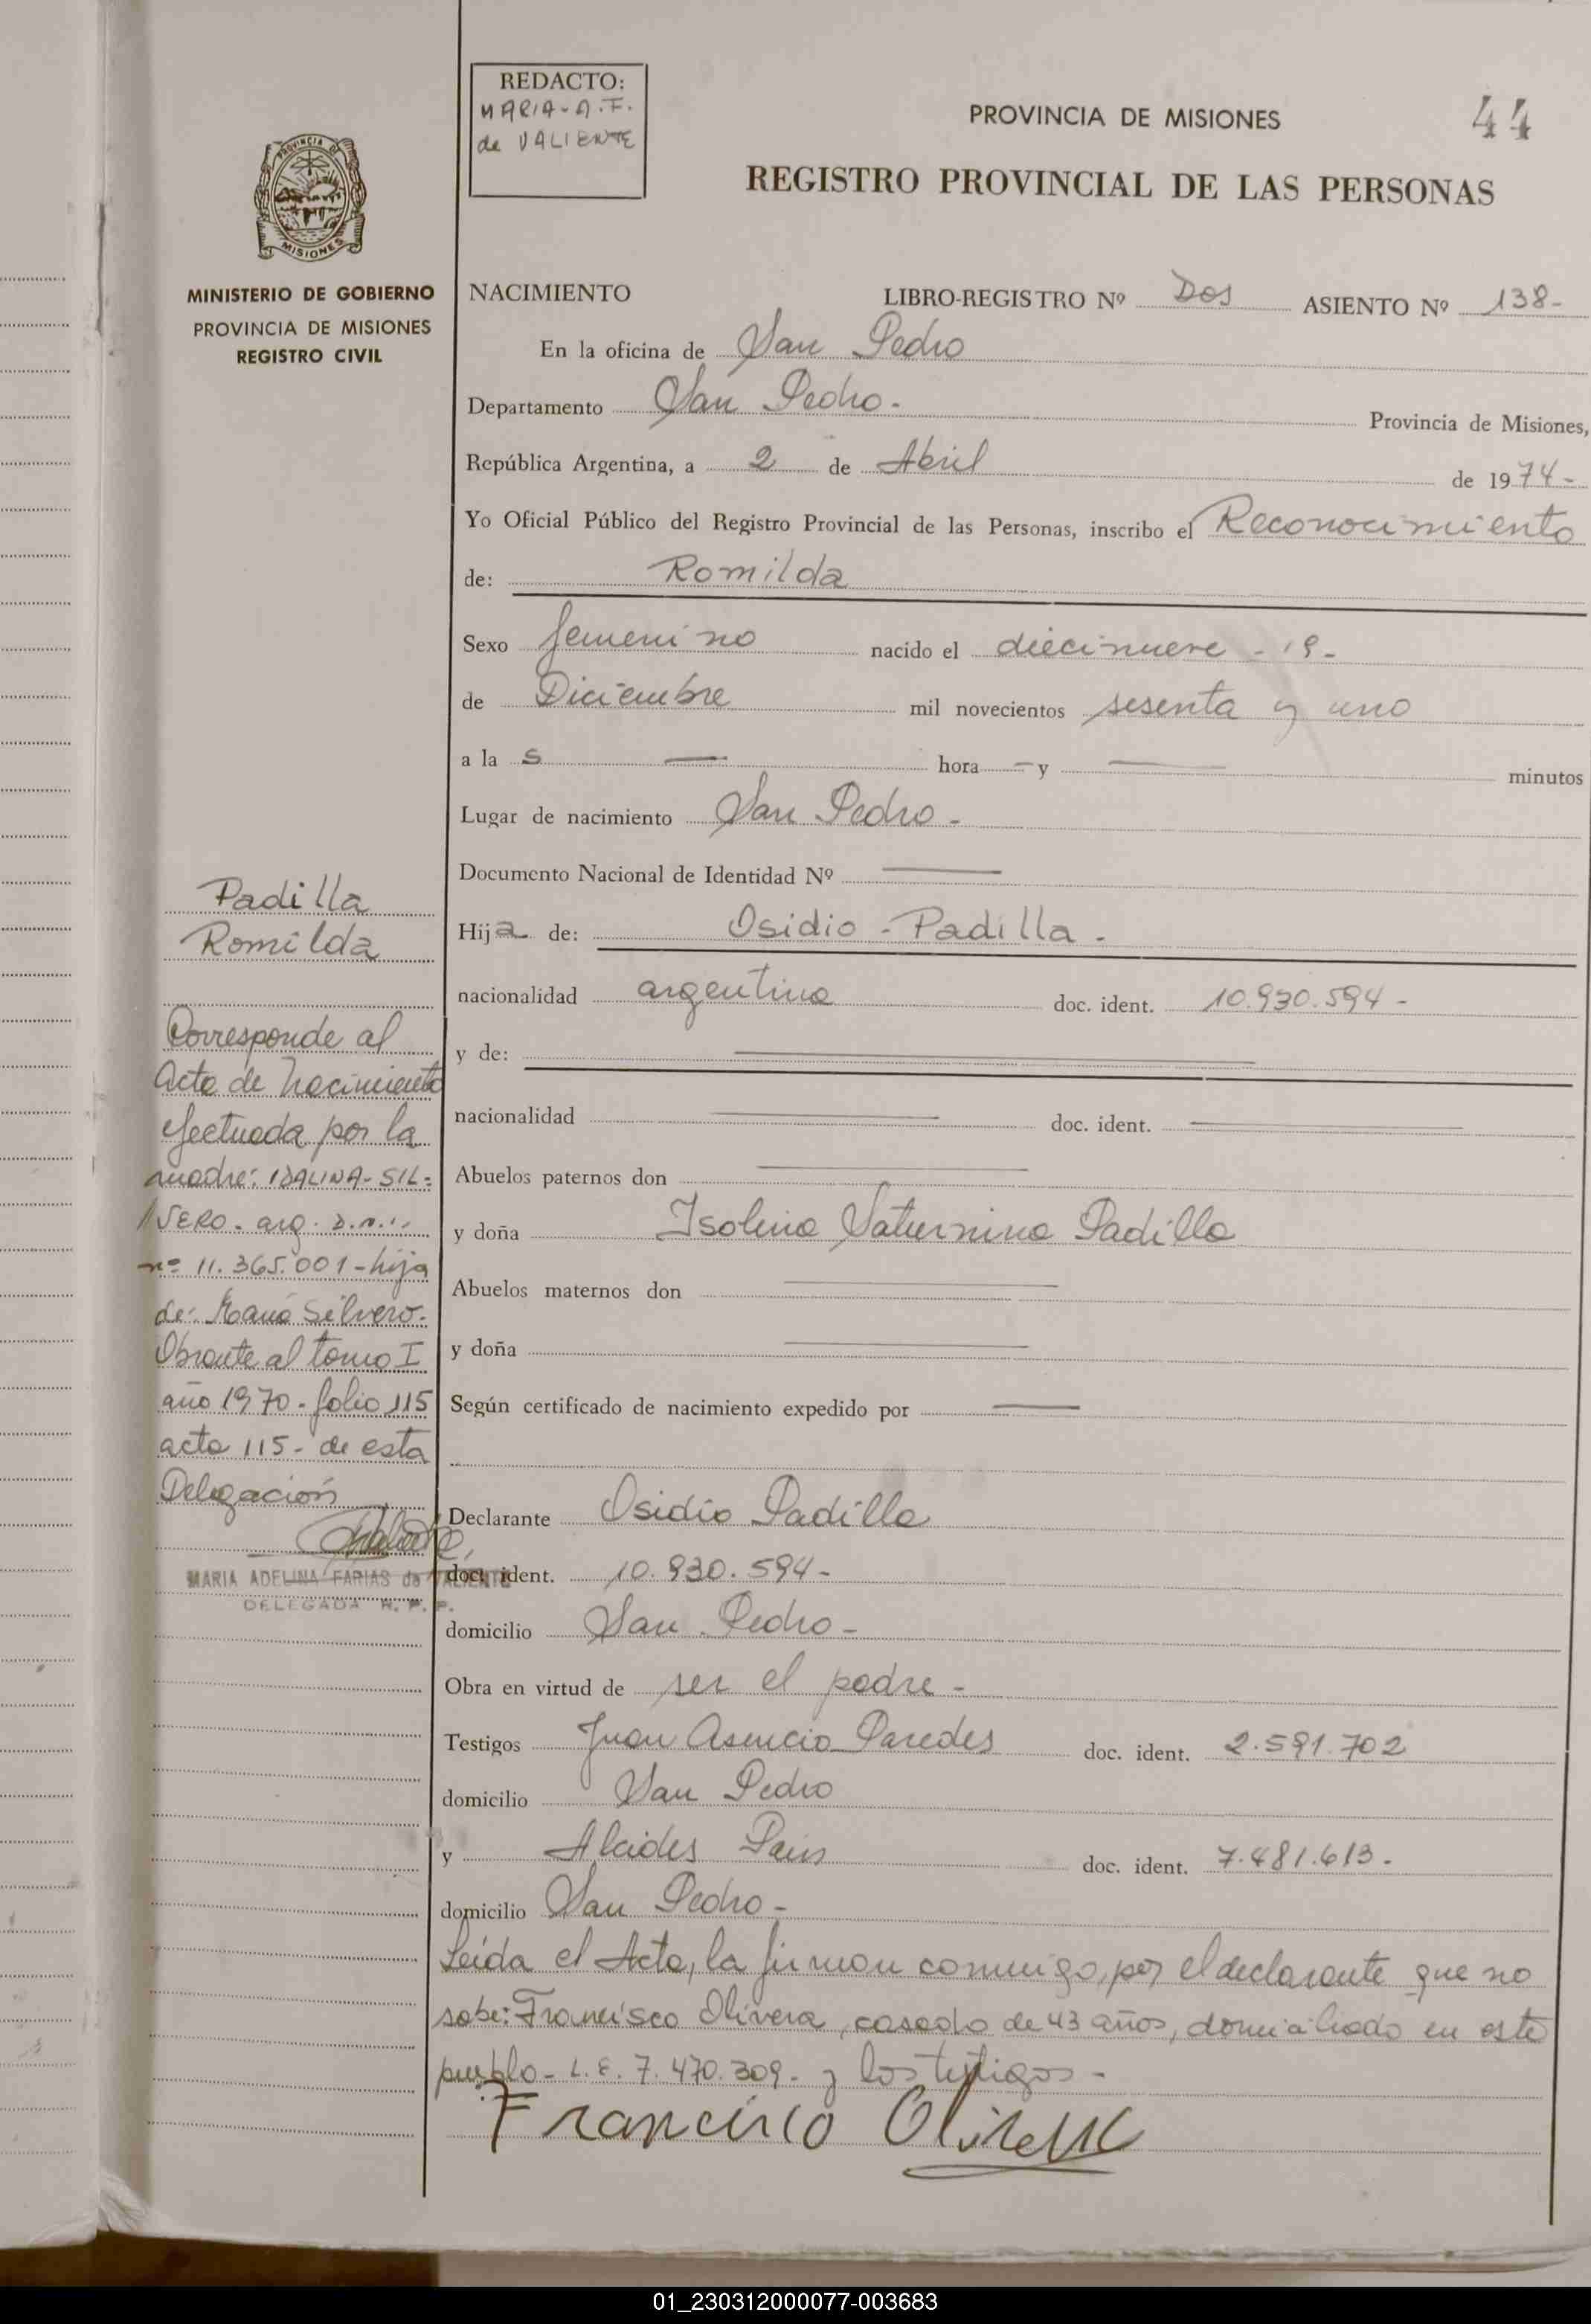 REDACTO:
MARIA-A.F.
de VALIENTE
PROVINCIA DE MISIONES
44
REGISTRO PROVINCIAL DE LAS PERSONAS
PROVINCIA DE
MISIONES
MINISTERIO DE GOBIERNO
PROVINCIA DE MISIONES
REGISTRO CIVIL
NACIMIENTO LIBRO-REGISTRO Nº Dos ASIENTO Nº 138-
En la oficina de San Pedro
Departamento San Pedro- Provincia de Misiones,
República Argentina, a 2 de Abril de 1974-
Yo Oficial Público del Registro Provincial de las Personas, inscribo el Reconocimiento
de: Romilda
Sexo femenino nacido el diecinueve - 19 -
de Diciembre mil novecientos sesenta y uno
a la s — hora — y — minutos
Lugar de nacimiento San Pedro-
Documento Nacional de Identidad Nº —
Hija de: Osidio - Padilla -
nacionalidad argentina doc. ident. 10.930.594-
y de: —
nacionalidad — doc. ident. —
Abuelos paternos don —
y doña Isolina Saturnina Padilla
Abuelos maternos don —
y doña —
Según certificado de nacimiento expedido por —
Declarante Osidio Padilla
doc. ident. 10.930.594-
domicilio San Pedro-
Obra en virtud de ser el padre-
Testigos Juan Asencio Paredes doc. ident. 2.591.702
domicilio San Pedro
y Alcides doc. ident. 7.481.613.
domicilio San Pedro-
Leída el Acta, la firman conmigo, por el declarante que no
sabe: Francisco Olivera, casado de 43 años, domiciliado en este
pueblo- L.E. 7.470.309- y los testigos-
Francisco Olivera
Padilla
Romilda
Corresponde al
Acta de Nacimiento
efectuada por la
madre: IDALINA-SIL=
//VERO. arg. D.n.i.
nº 11.365.001-hija
de: Silvero-
Obrante al tomo I
año 1970-folio 115
acta 115- de esta
Delegación
MARIA ADELINA FARIAS de VALIENTE
DELEGADA R. P. P.
01_230312000077-003683